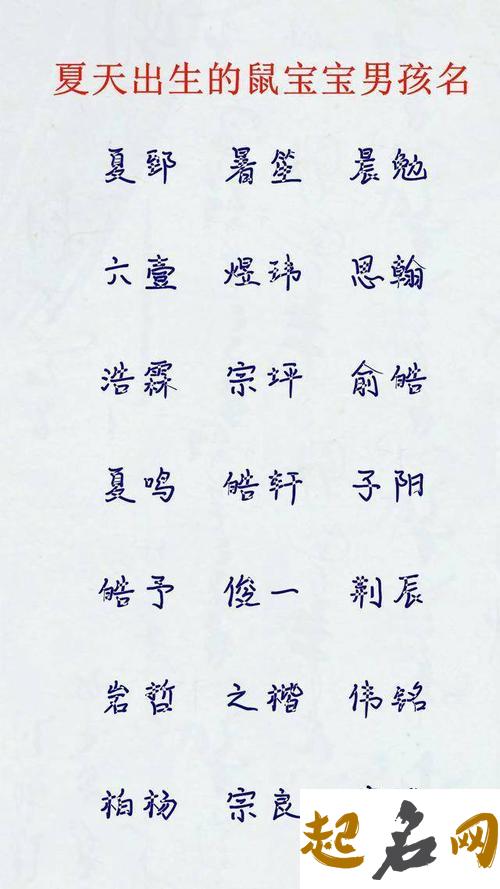 夏天出生的鼠宝宝男孩名
夏郢 暑笙 晨勉
六壹 煜玮 思翰
浩霖 宗坪 俞皓
夏鸣 皓轩 子阳
皓予 俊一 荆辰
岩哲 之楷 伟铭
柏杨 宗良
起名网